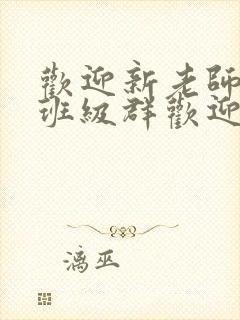 歡迎新老師
班級群歡迎
漓巫